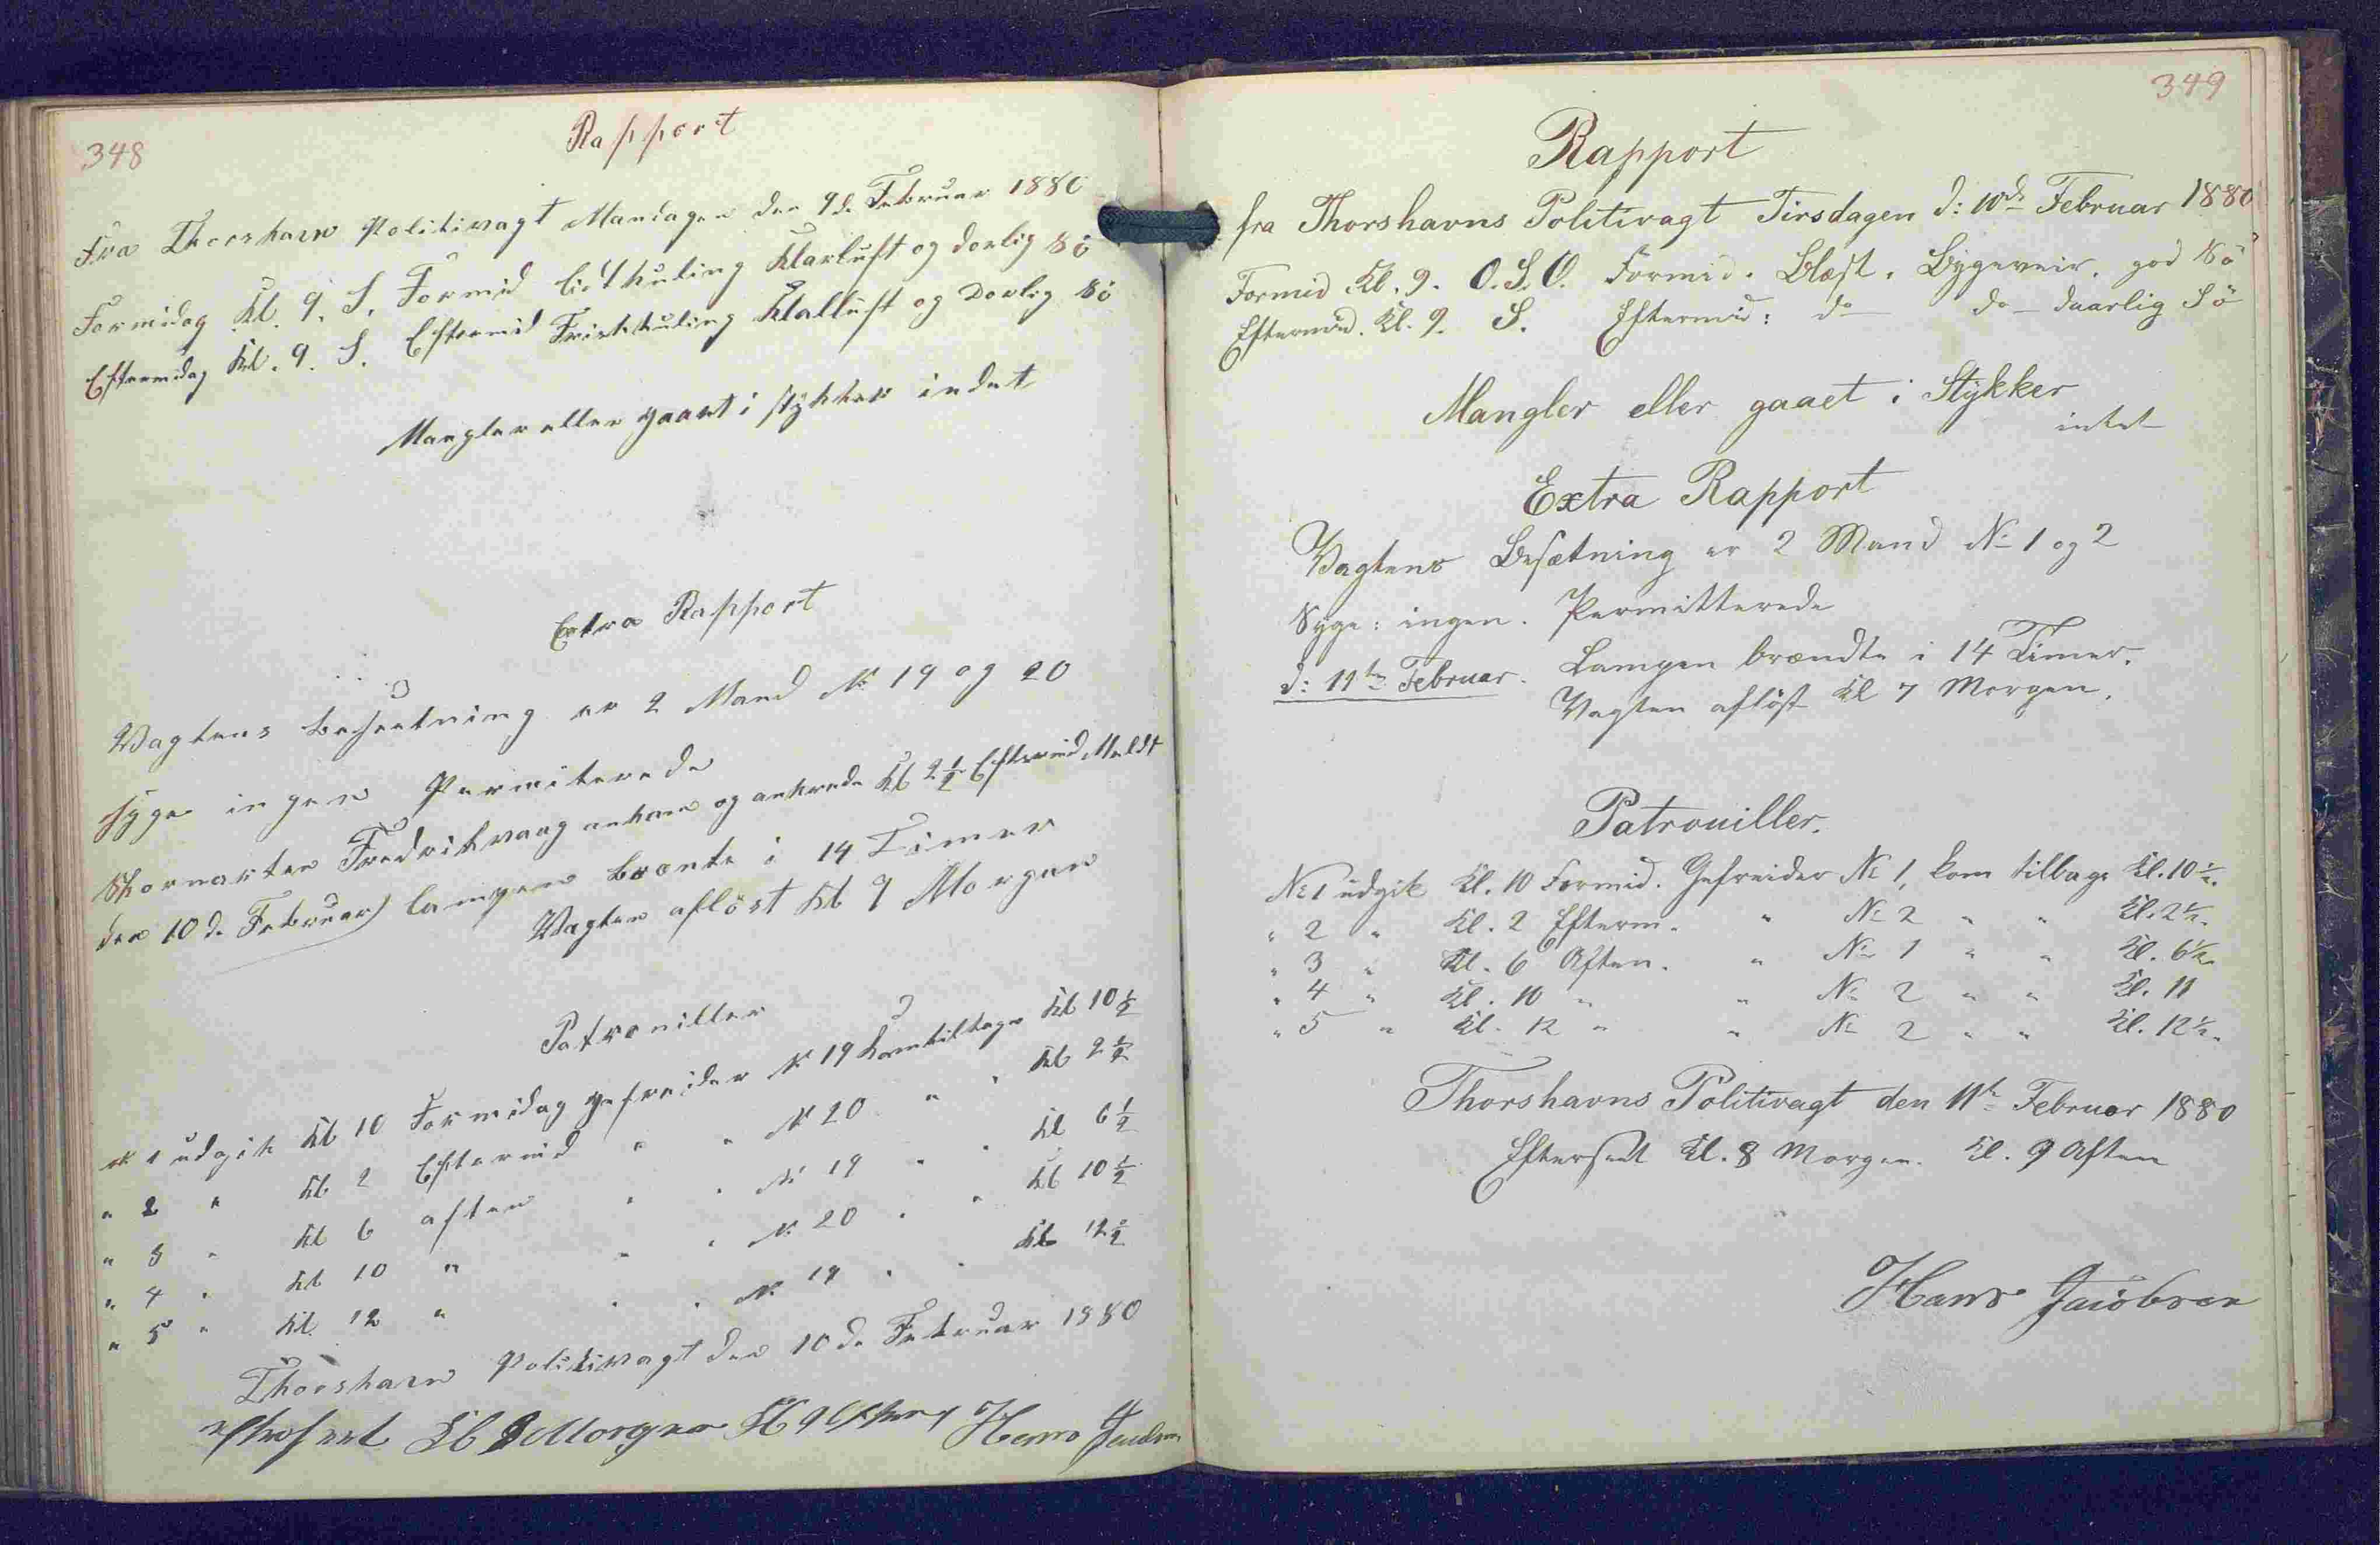 348
Rapport
Fra Thorshavn Politivagt Mandagen den 9d. Februar 1880
Formidag Kl. 9. S. Formid lidt kuling Klarluft og dorlig Sö
Eftermidag Kl. 9. S. Eftermid Friskkuling Klalluft og Dorlig Sö
Mangler eller gaaet i stykker indet
Extra Rapport
Vagtens besætning er 2 Mand No 19 og 20
syge ingen Permiterede
Skonnarten Fredrikvaag ankom og ankrede Kl 2½ Eftermid Meldt
den 10 d. Februar) lampen brænte i 14 Timer
Vagten aflöst Kl 9 Morgen
Patroniller
No 1 udgik Kl 10 Formidag gefreider No 19 kom tilbage Kl 10½
" 2 " Kl 2 Eftermid " " No 20 " " Kl 2½
" 3 " Kl 6 aften " " No 19 " " Kl 6½
" 4 " Kl 10 " " " No 20 " " Kl 10½
" 5 " Kl. 12 " " " No 19 " " Kl 12½
Thorshavn Politivagt den 10 d. Februar 1880
Efterseet Kl 8 Morgen Kl 9 Aften Hans
349
Rapport
fra Thorshavns Politivagt Tirsdagen d: 10de Februar 1880
Formid Kl. 9. O.S.O. Formid. Blæst. Bygeveir. god Sö
Eftermid. Kl. 9. S. Eftermid: do do - daarlig Sö
Mangler eller gaaet i Stykker
intet
Extra Rapport
Vagtens Besætning er 2 Mand No 1 og 2
Syge: ingen. Permitterede
d: 11te Februar. Lampen brændte i 14 Timer.
Vagten aflöst Kl 7 Morgen.
Patrouiller.
No 1 udgik Kl. 10 Formid. Gefreider No 1, kom tilbage Kl. 10½.
" 2 " Kl. 2 Efterm. " No 2 " " Kl. 2½.
" 3 " Kl. 6 Aften. " No 1 " " Kl. 6½
" 4 " Kl. 10 " " No 2 " " Kl. 11
" 5 " Kl. 12 " " No 2 " " Kl. 12½.
Thorshavns Politivagt den 11te Februar 1880
Efterseet Kl. 8 Morgen. Kl. 9 Aften
Hans Jacobsen